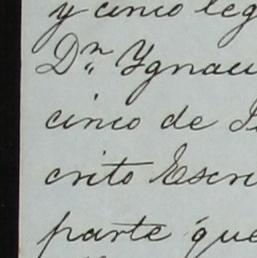 y cinco leg
Dn. Ygnaci
cinco de
crito Escri
parte que